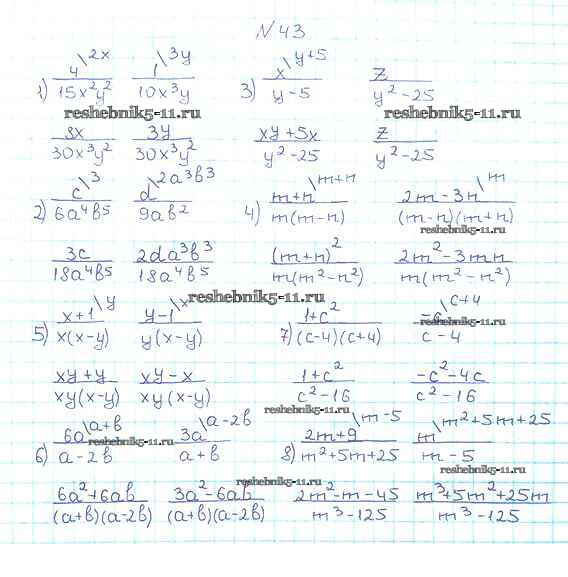 N 43
1) 4\2x / 15x²y²   1\3y / 10x³y   3) x\y+5 / y-5   z / y²-25
reshebnik5-11.ru   reshebnik5-11.ru
8x / 30x³y²   3y / 30x³y²   xy+5x / y²-25   z / y²-25
2) c\3 / 6a⁴b⁵   d\2a³b³ / 9ab²   4) m+n\m+n / m(m-n)   2m-3n\m / (m-n)(m+n)
reshebnik5-11.ru
3c / 18a⁴b⁵   2da³b³ / 18a⁴b⁵   (m+n)² / m(m²-n²)   2m²-3mn / m(m²-n²)
reshebnik5-11.ru
5) x+1\y / x(x-y)   y-1\x / y(x-y)   7) 1+c² / (c-4)(c+4)   -c\c+4 / c-4
reshebnik5-11.ru
xy+y / xy(x-y)   xy-x / xy(x-y)   1+c² / c²-16   -c²-4c / c²-16
6) 6a\a+b / a-2b   3a\a-2b / a+b   8) 2m+9\m-5 / m²+5m+25   m\m²+5m+25 / m-5
reshebnik5-11.ru   reshebnik5-11.ru
reshebnik5-11.ru
6a²+6ab / (a+b)(a-2b)   3a²-6ab / (a+b)(a-2b)   2m²-m-45 / m³-125   m³+5m²+25m / m³-125